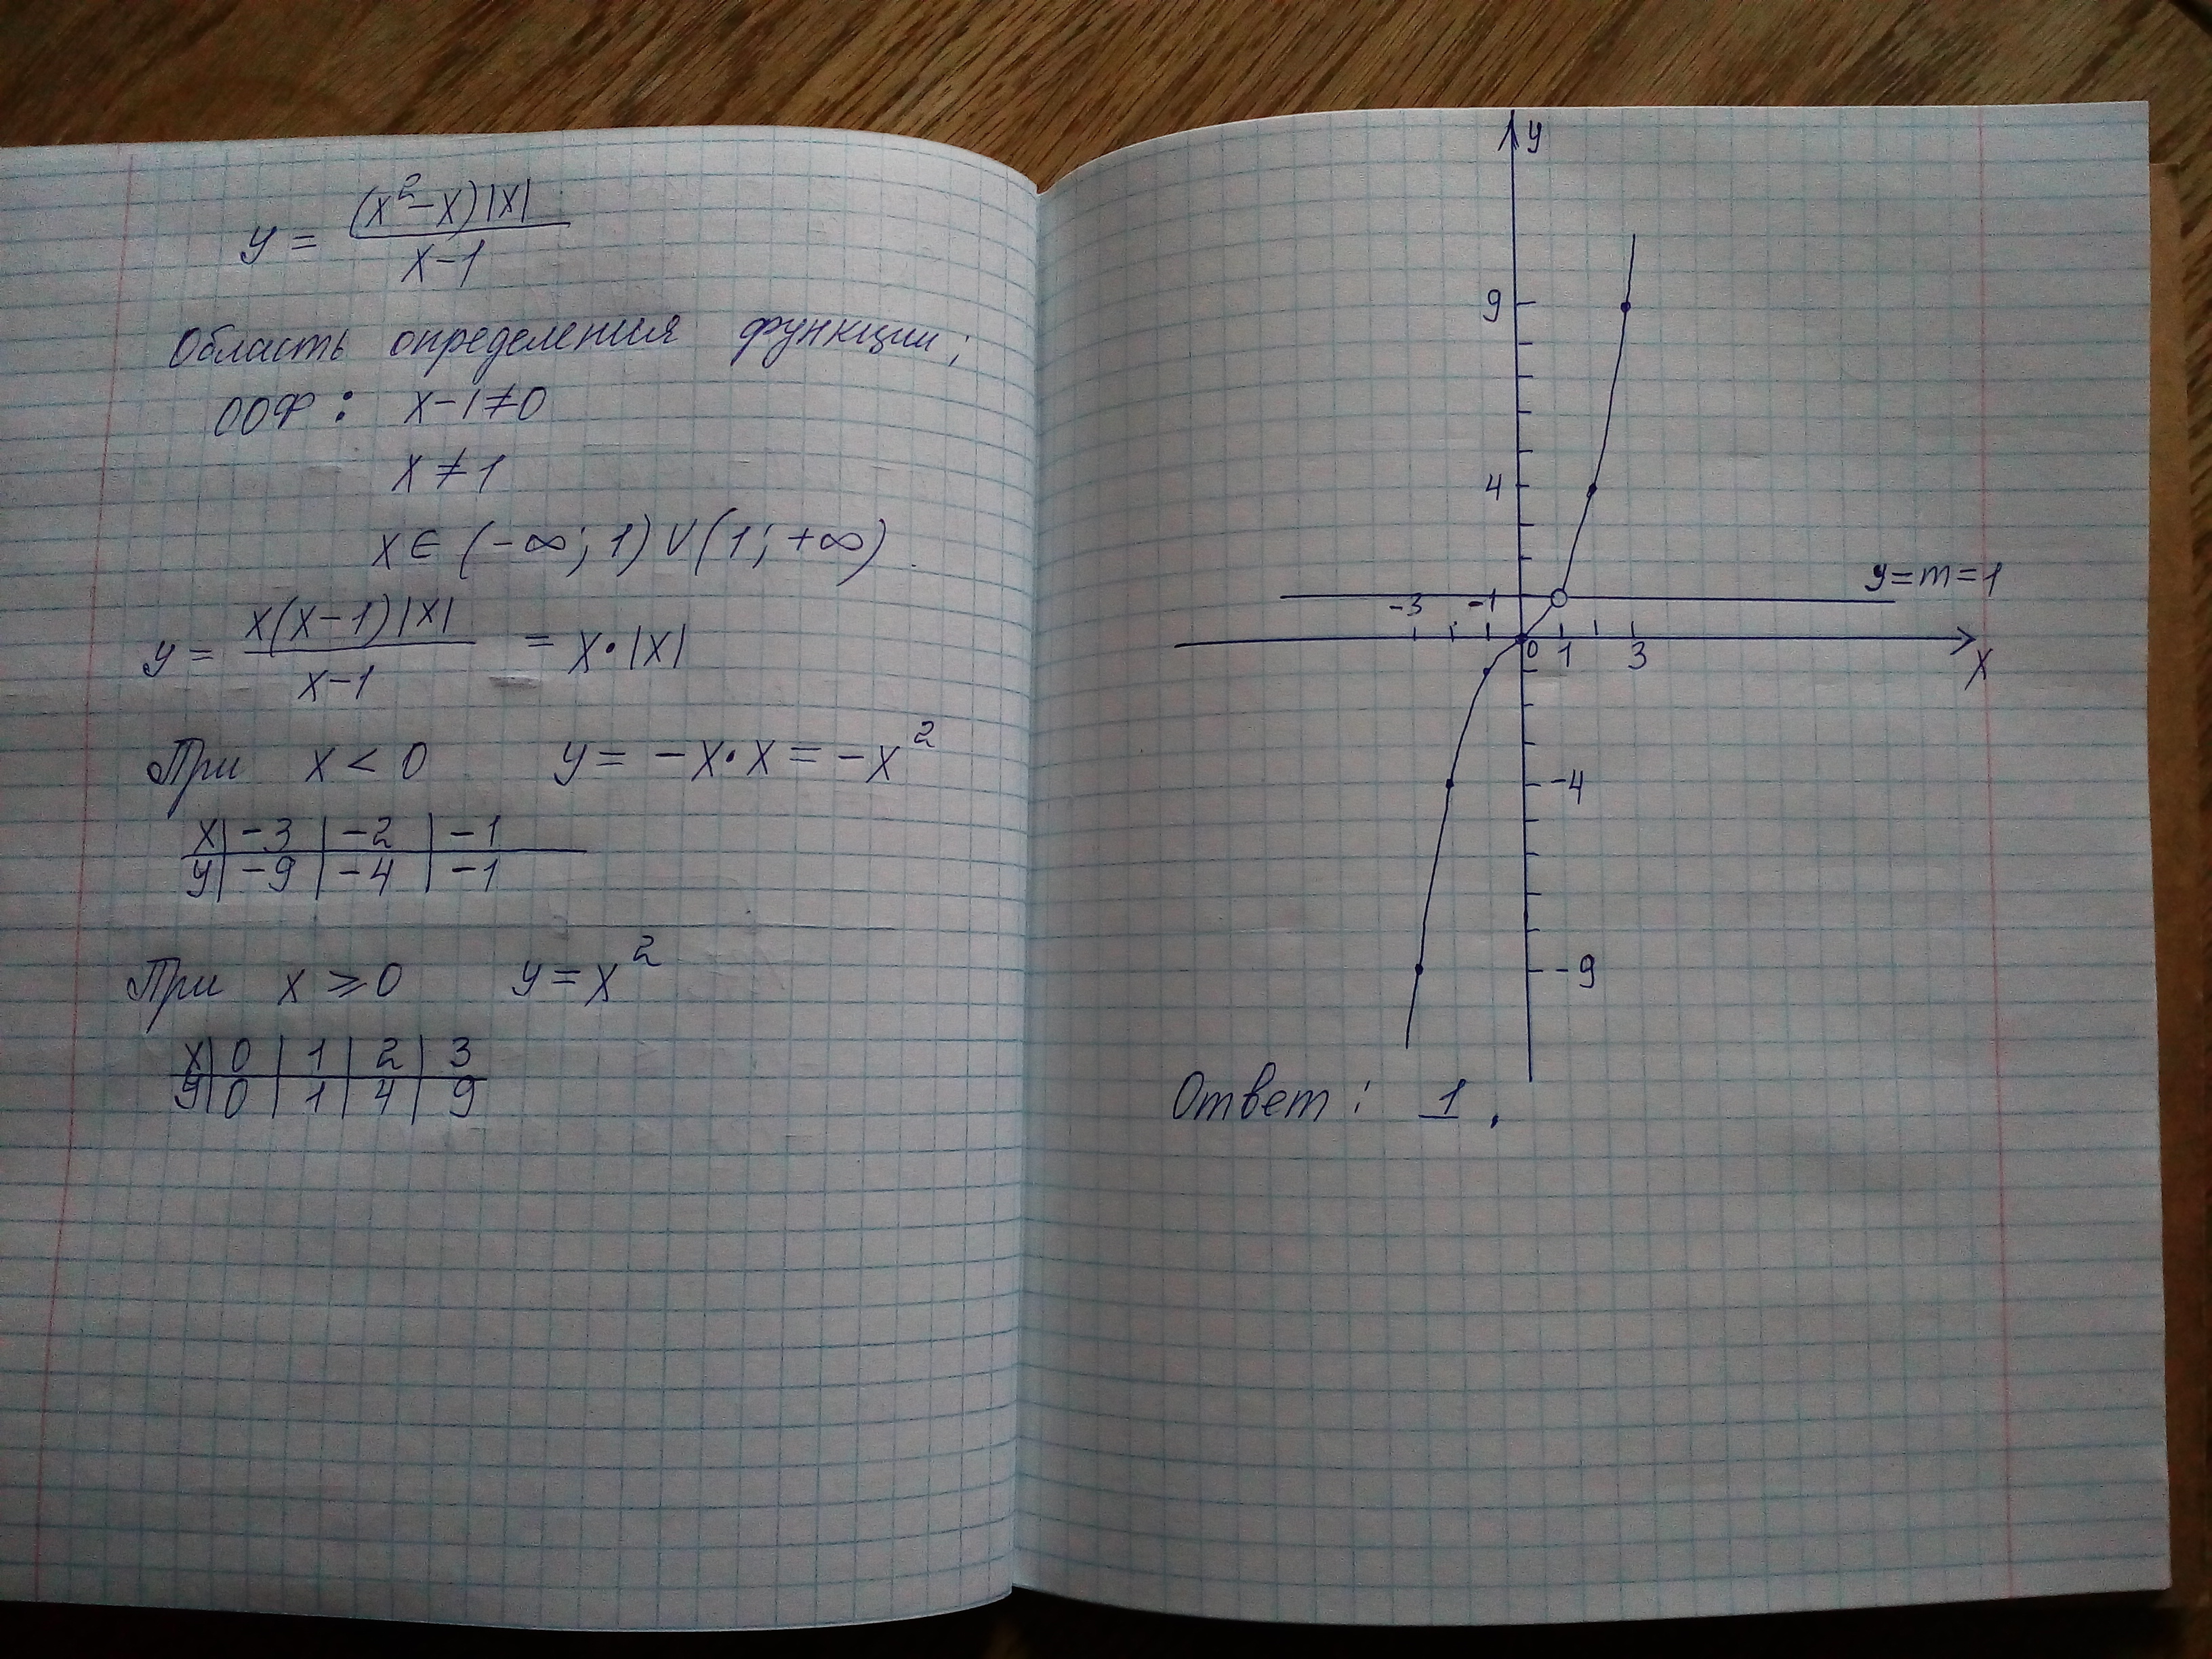 y = (x²-x)|x| / x-1
Область определения функции;
ООФ: x-1≠0
x ≠ 1
x ∈ (-∞; 1) ∨ (1; +∞).
y = x(x-1)|x| / x-1 = x·|x|
При x < 0 y = -x·x = -x²
x | -3 | -2 | -1
y | -9 | -4 | -1
При x ⩾ 0 y = x²
x | 0 | 1 | 2 | 3
y | 0 | 1 | 4 | 9
y
9
4
y=m=1
-3 -1
0 1 3 x
-4
-9
Ответ: 1.